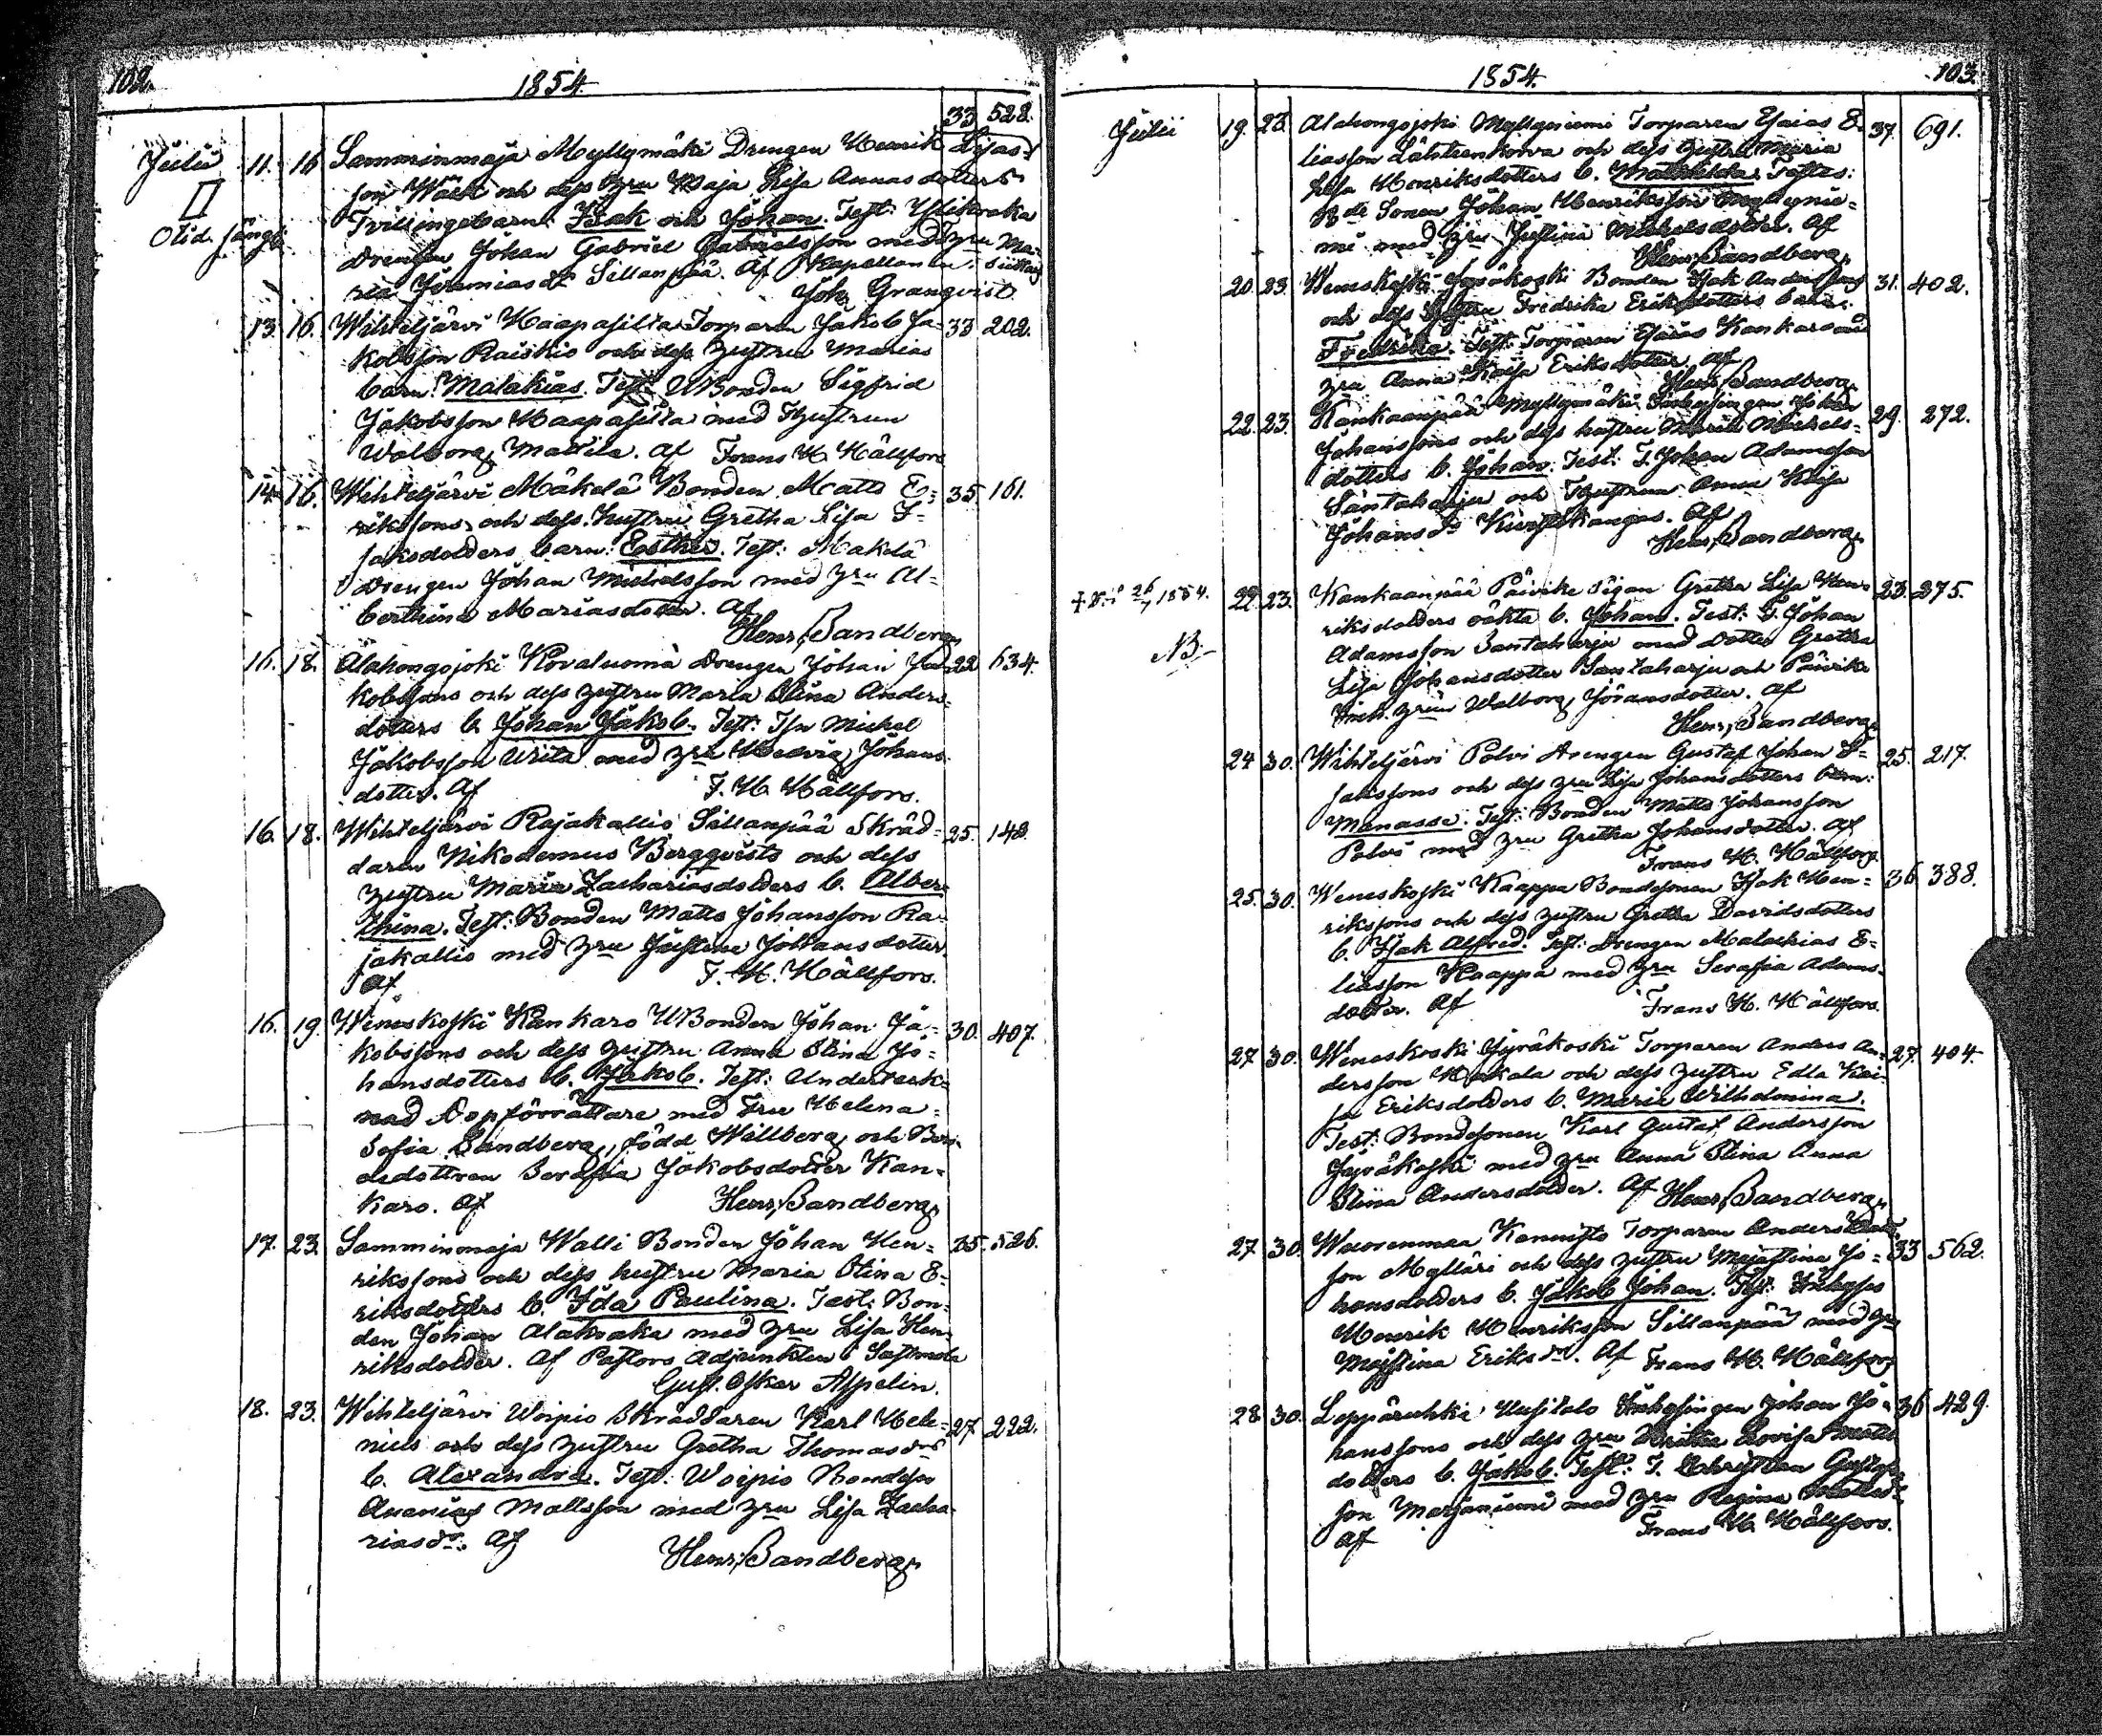 102.
1854
33 528.
Julii 11. 16 Samminmaja Myllymäki Drengen Henrik Lisas-
son Wälli och dess hru Maja Lisa Annasdotters
Otid. sängl. Tvillingebarn: Isak och Johan. Test: Ylikraka
Drengen Johan Gabriel Gabrielsson med hru Ma-
ria Jeremiasdr Sillanpää. Af Kapellanen i
Joh. Granqvist
13. 16. Wihteljärvi Haapasilta Torparen Jakob Ja- 33 202.
kobsson Raiskio och dess hustru Marias
barn: Malakias. Test: UBonden Sigfrid
Jakobsson Haapasilta med Hustrun
Walborg Mattila. Af Frans H. Hällfors
14. 16. Wihteljärvi Mäkelä Bonden Matts E- 35 161.
rikssons och dess hustru Gretha Lisa I-
saksdotters barn: Esther. Test: Mäkelä
Drengen Johan Michelsson med hru Al-
berthina Mariasdotter. Af
Henr. Sandberg
16. 18. Alahongojoki Kovaluoma Drengen Johan Ja- 22 634.
kobssons och dess hustru Maria Stina Anders-
dotters b. Johan Jakob. Test: Ish Michel
Jakobsson Writa med hru Hedvig Johans-
dotter. Af F. H. Hällfors.
16. 18. Wihteljärvi Rajakallio Sillanpää Skräd- 25. 148.
daren Nikodemus Bergqvists och dess
hustru Maria Zachariasdotters b. Alber-
thina. Test: Bonden Matts Johansson Ra-
jakallio med hru Justina Johansdotter.
Af F. H. Hällfors.
16. 19. Weneskoski Kankaro UBonden Johan Ja- 30. 407.
kobssons och dess hustru Anna Stina Jo-
hansdotters b. Jakob. Test: Underteck-
nad Dopförrättare med Fru Helena
Sofia Sandberg, född Wallberg och Bon-
dedottren Serafia Jakobsdotter Kan-
karo. Af Henr. Sandberg
17. 23. Samminmaja Walli Bonden Johan Hen- 35. 526.
rikssons och dess hustru Maria Stina E-
riksdotters b. Ida Paulina. Test: Bon-
den Johan Alakraka med hru Lisa Hen-
riksdotter. Af Pastors Adjunkten i Sastmola
Gust. Oskar Aspelin.
18. 23. Wihteljärvi Woipio Skräddaren Karl Hele- 27 222.
nius och dess hustru Gretha Thomasdrs
b. Alexandra. Test: Woipio Bondeson
Ananias Mattsson med hru Lisa Zacha-
riasdr. Af Henr. Sandberg
1854.
103.
Julii 19. 23. Alahongojoki Myllyniemi Torparen Esaias E- 37. 691.
liasson Lähteenkorva och dess hustru Maria
Lisa Henriksdotters b. Mathilda. Testes:
Sonen Johan Henriksson Myllynie-
mi med hru Justina Michelsdotter. Af
Henr. Sandberg
20. 23. Weneskoski Jyräkoski Bonden Isak Anderssons 31. 402.
och dess hustru Fredrika Eriksdotters barn:
Fredrika. Test: Torparen Esaias Kankaro med
hru Anna Kaisa Eriksdotter. Af
Henr. Sandberg
22. 23. Kankaanpää Myllymäki Inhysingen Johan 29. 272.
Johanssons och dess hustru Maria Michels-
dotters b. Johan. Test: T. Johan Adamsson
Santaharju och Hustrun Anna Kaisa
Johansdr Kuuskikangas. Af
Henr. Sandberg
† d. 26/7 1854. 22. 23. Kankaanpää Päivike Pigan Gretha Lisa Hen- 23. 275.
riksdotters oäkta b. Johan. Test: T. Johan
NB. Adamsson Santaharju med dotter Gretha
Lisa Johansdotter Santaharju och Päivike
Inh. hru Walborg Jöransdotter. Af
Henr. Sandberg
24 30. Wihteljärvi Polvi Drengen Gustaf Johan I- 25. 217.
sakssons och dess hru Lisa Johansdotters barn:
Manasse. Test: Bonden Matts Johansson
Polvi med hru Gretha Johansdotter. Af
Frans H. Hällfors
25. 30. Weneskoski Kaappa Bondesonen Isak Hen- 36 388.
rikssons och dess hustru Gretha Davidsdotters
b. Isak Alfred. Test: Drengen Malachias E-
liasson Kaappa med hru Serafia Adams-
dotter. Af Frans H. Hällfors.
27 30. Weneskoski Jyräkoski Torparen Anders An- 27. 404.
dersson Mäkela och dess hustru Edla Kai-
sa Eriksdotters b. Maria Wilhelmina.
Test: Bondesonen Karl Gustaf Andersson
Jyräkoski med hru Anna Stina Anna
Stina Andersdotter. Af Henr. Sandberg
27 30. Wuorenmaa Kannisto Torparen Anders
son Mylläri och dess hustru Majastina Jo- 33 562.
hansdotters b. Jakob Johan. Test: Inhyses
Henrik Henriksson Sillanpää med hru
Majstina Eriksdr. Af Frans H. Hällfors
28 30. Leppäruhka Uusitalo Inhysingen Johan Jo- 36 429.
hanssons och dess hru Lovisa Matts-
dotters b. Jakob. Test: T. Christian Gustafs-
son Marjaniemi med hru Regina Mattsdr.
Af Frans H. Hällfors.